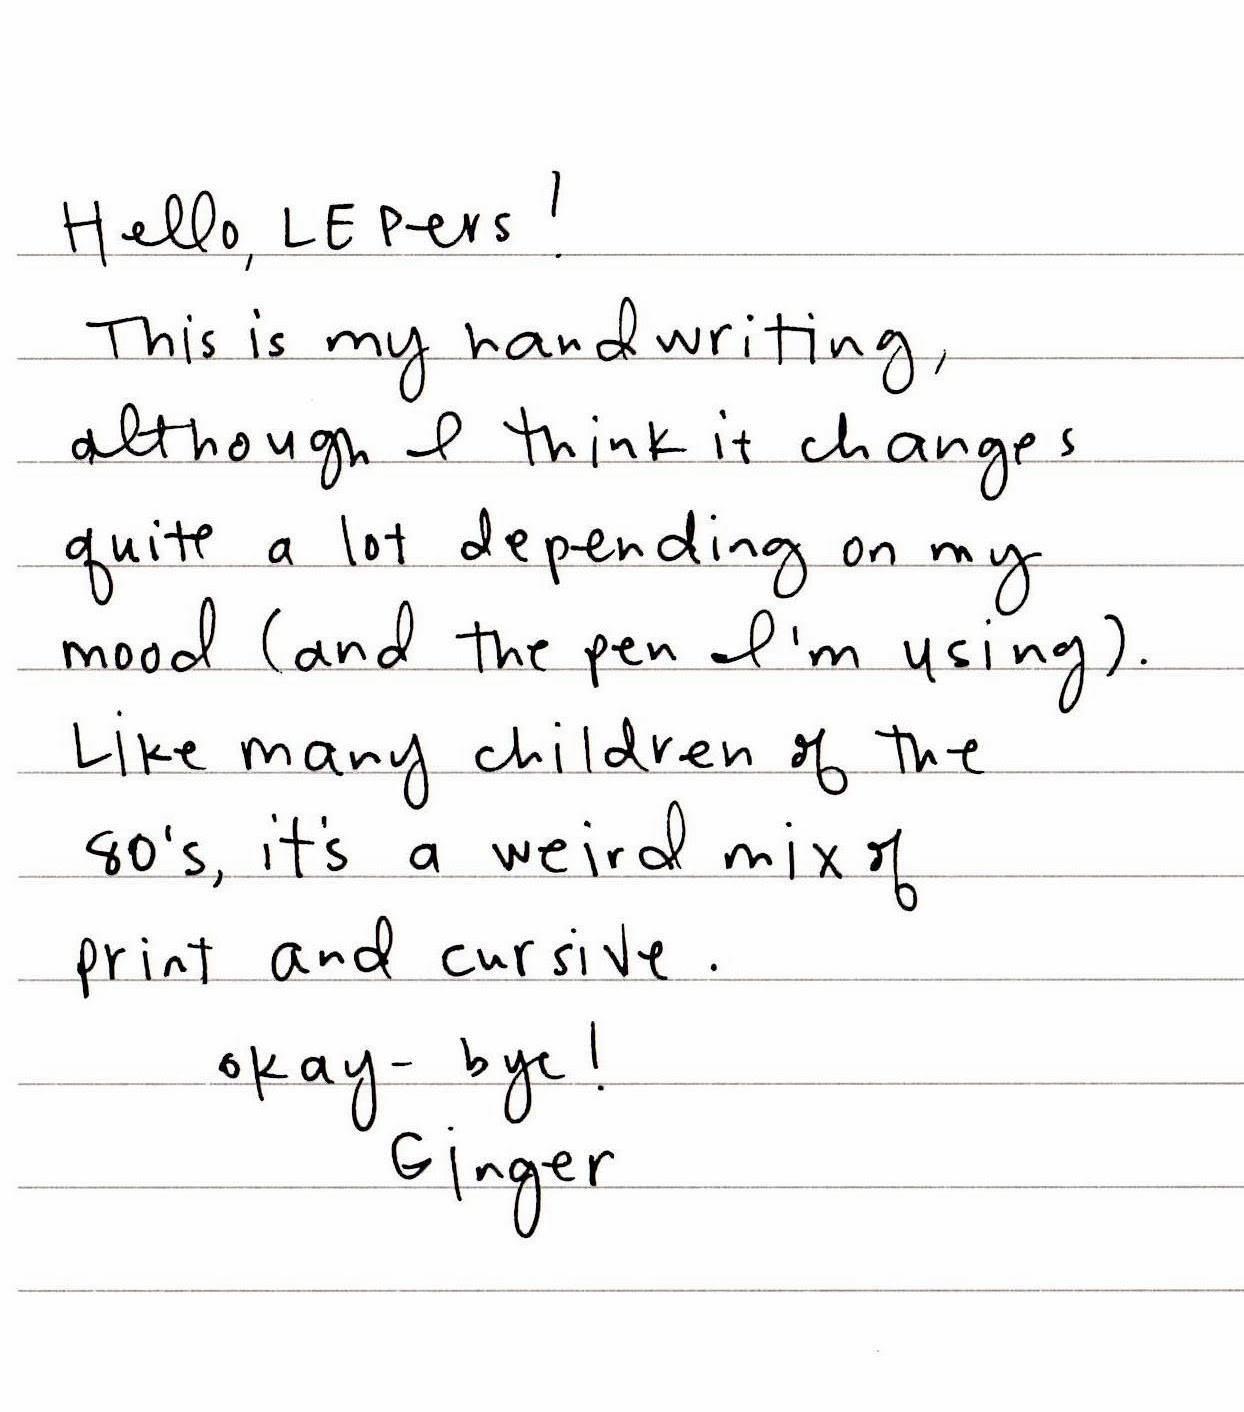 Hello, LEPers!
This is my handwriting,
although I think it changes
quite a lot depending on my
mood (and the pen I'm using).
Like many children of the
80's, it's a weird mix of
print and cursive.
okay-bye!
Ginger